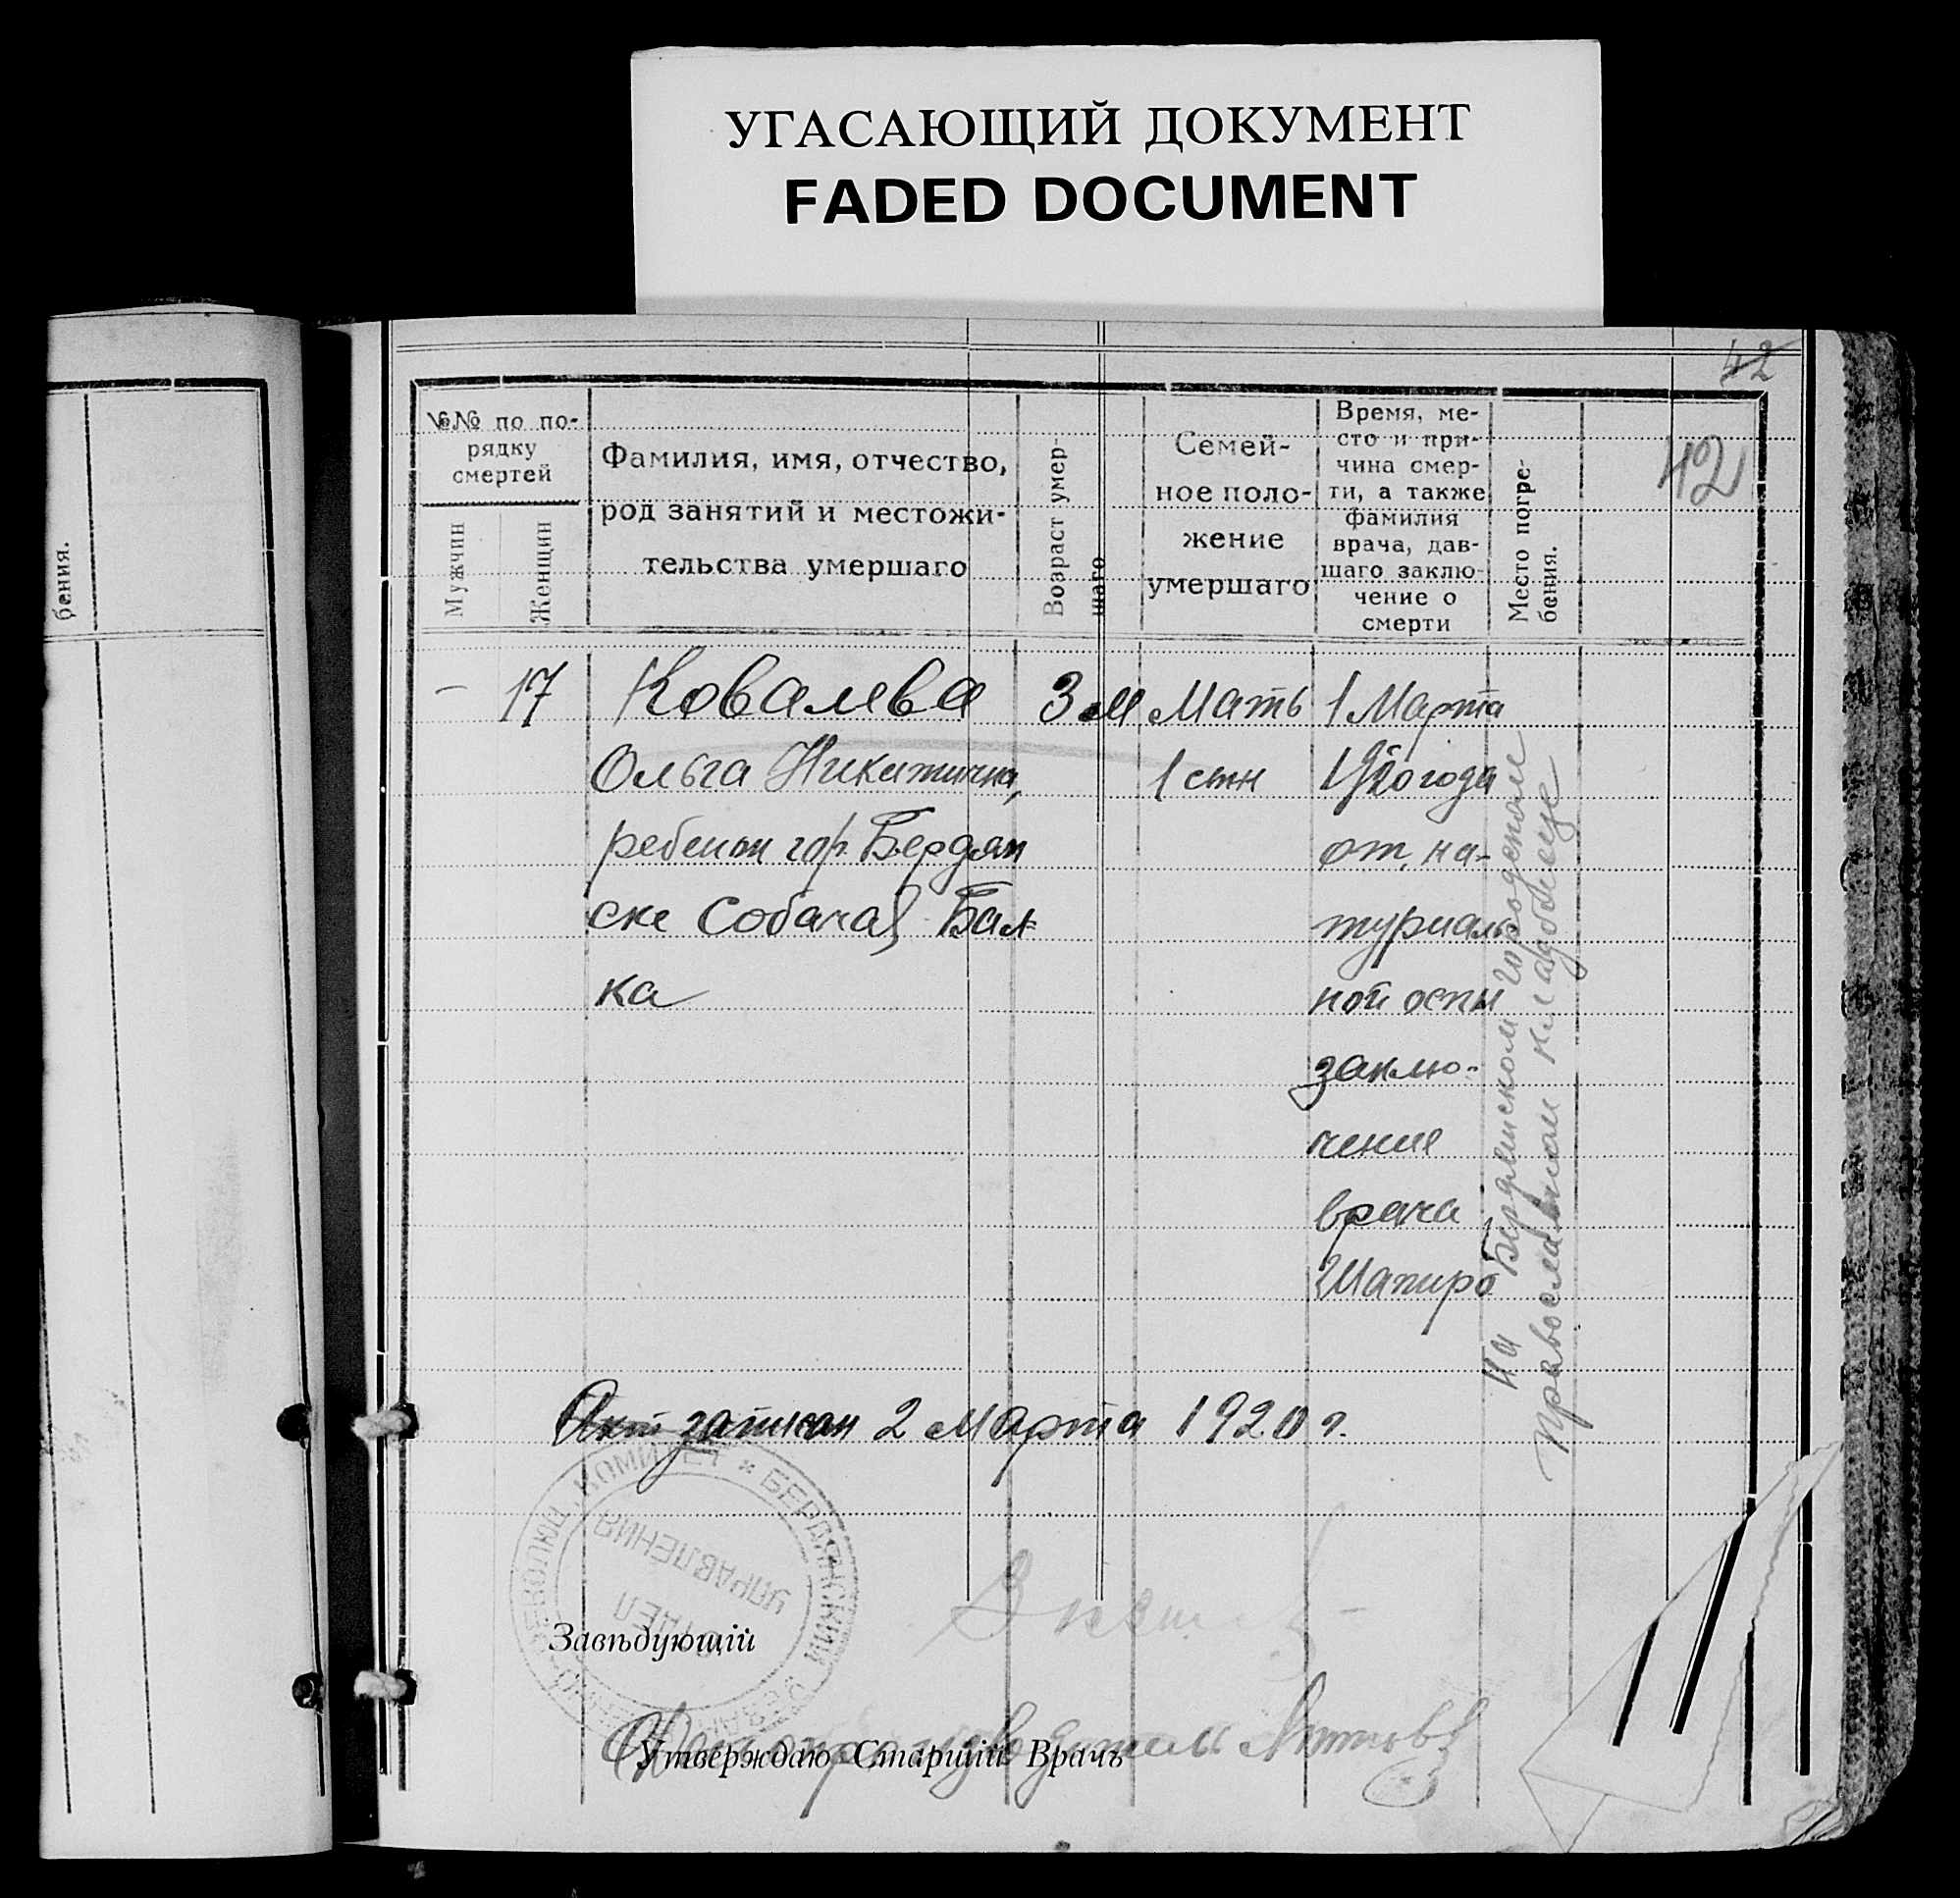 УГАСАЮЩИЙ ДОКУМЕНТ
FADED DOCUMENT
42
42
бения.
№№ по по-
рядку
смертей
Мужчин
Женщин
Фамилия, имя, отчество,
род занятий и местожи-
тельства умершаго
Возраст умер-
шаго
Семей-
ное поло-
жение
умершаго
Время, ме-
сто и при-
чина смер-
ти, а также
фамилия
врача, дав-
шаго заклю-
чение о
смерти
Место погре-
бения.
– 17
Ковалева
Ольга Никитична,
ребенок гор. Бердян
ске Собачая Бал-
ка
3 м
Мать
1 стн
1 Марта
1920 года
от на-
туриаль
ной оспы
заклю-
чение
врача
Шапиро
на Бердянском городском
православном кладбище
Акт записан 2 Марта 1920 г.
БЕРДЯНСКИЙ УЕЗДН
РЕВОЛЮЦ. КОМИТЕТ *
ОТДЕЛ
УПРАВЛЕНИЯ
Завѣдующій
Утверждаю Старшій Врачъ
Делопроизводитель